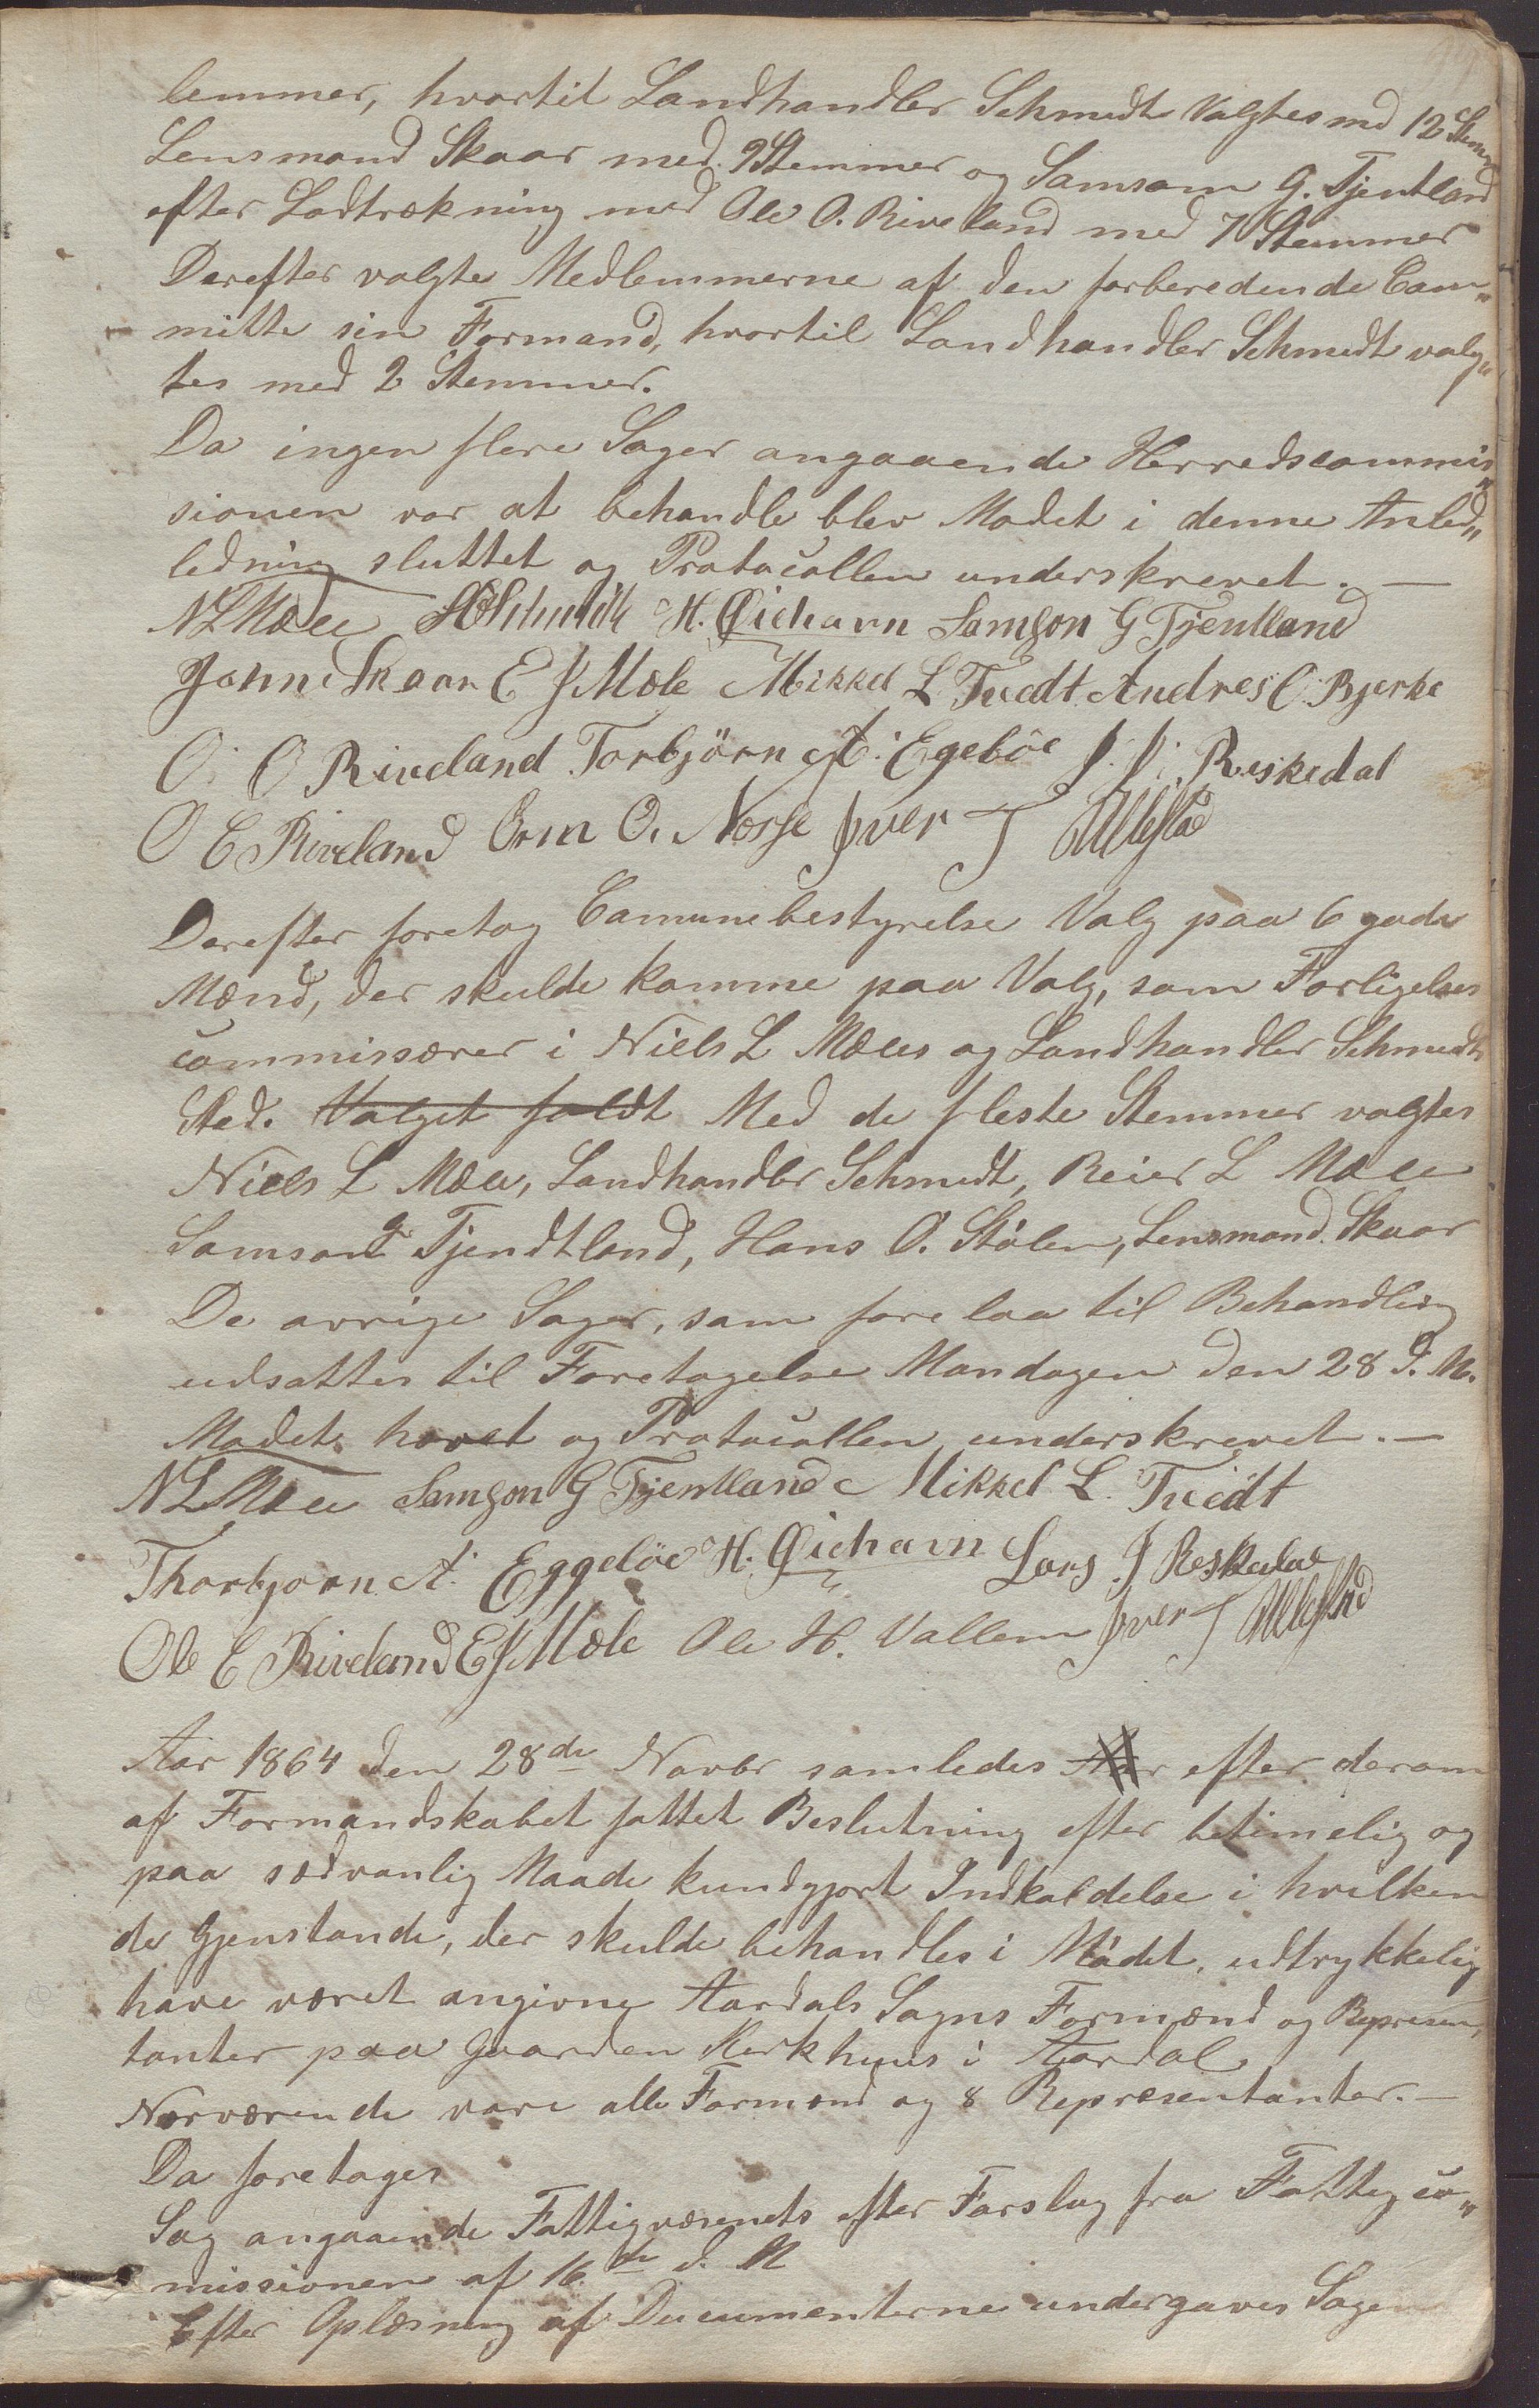 lemmer, hvortil Landhandler Schmidt valgtes med 12 Stem
Lensmand Skaar med 9 Stemmer og Samson G. Tjentland
efter Lodtrækning med Ole O. Riveland med 7 Stemmer
Derefter valgte Medlemmerne af den forberedende Com„
mitte sin Formand, hvortil Landhandler Schmidt valg„
tes med 2 Stemmer.
Da ingen flere Sager angaaende Herredscommis„
sionen var at behandle blev Mødet i denne Anled„
ledning sluttet og Protocollen underskrevet. —
N L Mæle Schmidt H. Øichavn Samson G Tjentland
Jonn Skaar E J Mæle Mikkel L. Tvedt Andres O. Bjerke
O. O Riveland Torbjörn A. Egeböe J. J. Reskedal
O E Riveland Orm O. Nesse Iver T Ullestad
Derefter foretog Comunebestyrelse Valg paa 6 gode
Mænd, der skulde komme paa Valg, som Forligelses
commissærer i Niels L Mæles og Landhandler Schmidts
Sted. Valget faldt Med de fleste Stemmer valgtes
Niels L Mæle, Landhandler Schmidt, Reier L Mæle
Samson G Tjendtland, Hans O. Stölen, Lensmand Skaar
De øvrige Sager, som forelaa til Behandling
udsattes til Foretagelse Mandagen den 28 d. M.
Mødet hævet og Protocollen underskrevet. —
N L Mæle Samson G Tjentland Mikkel L. Tvedt
Thorbjørn A. Eggeböe H. Øichavn Lars J Reskedal
Ole E Riveland E J Mæle Ole H. Vallem Iver T Ullestad
Aar 1864 den 28de Novbr samledes efter derom
af Formandskabet fattet Beslutning efter betimelig og
paa sædvanlig Maade kundgjort Indkaldelse i hvilken
de Gjenstande, der skulde behandles i Mödet, udtrykkelig
have været angivne Aardals Sogns Formænd og Represen„
tanter paa Gaarden Kirkhuus i Aardal
Nærværende vare alle Formænd og 8 Repræsentanter. —
Da foretages
Sag angaaende Fattigvæsenets efter Forslag fra Fattigco„
missionen af 16de d. M
Efter Oplæsning af Documenterne undergaves Sagen